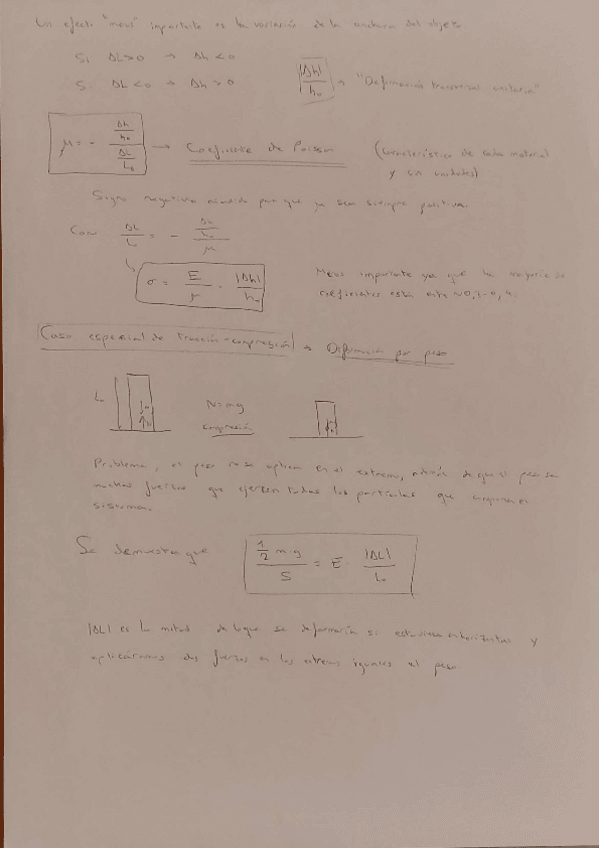 Un efecto "menos" importante es la variación de la anchura del objeto.
Si ΔL>0 → Δh<0
Si ΔL<0 → Δh>0
|Δh|/h₀ → "Deformación trasversal unitaria"
μ = - (Δh/h₀)/(ΔL/L₀) → Coeficiente de Poisson (Característico de cada material
y sin unidades)
Signo negativo añadido para que μ sea siempre positiva.
Como ΔL/L₀ = - (Δh/h₀)/μ
↳ σ = E/μ · |Δh|/h₀
Menos importante ya que la mayoría de
coeficientes está entre ~0,2-0,4.
Caso especial de tracción-compresión → Deformación por peso
L₀
N=mg
compresión
Problema, el peso no se aplica en el extremo, además de que el peso son
muchas fuerzas que ejercen todas las partículas que el
sistema.
Se demuestra que (½ m·g)/S = E · |ΔL|/L₀
|ΔL| es la mitad de lo que se deformaría si estuviese en horizontal y
aplicáramos dos fuerzas en los extremos iguales al peso.